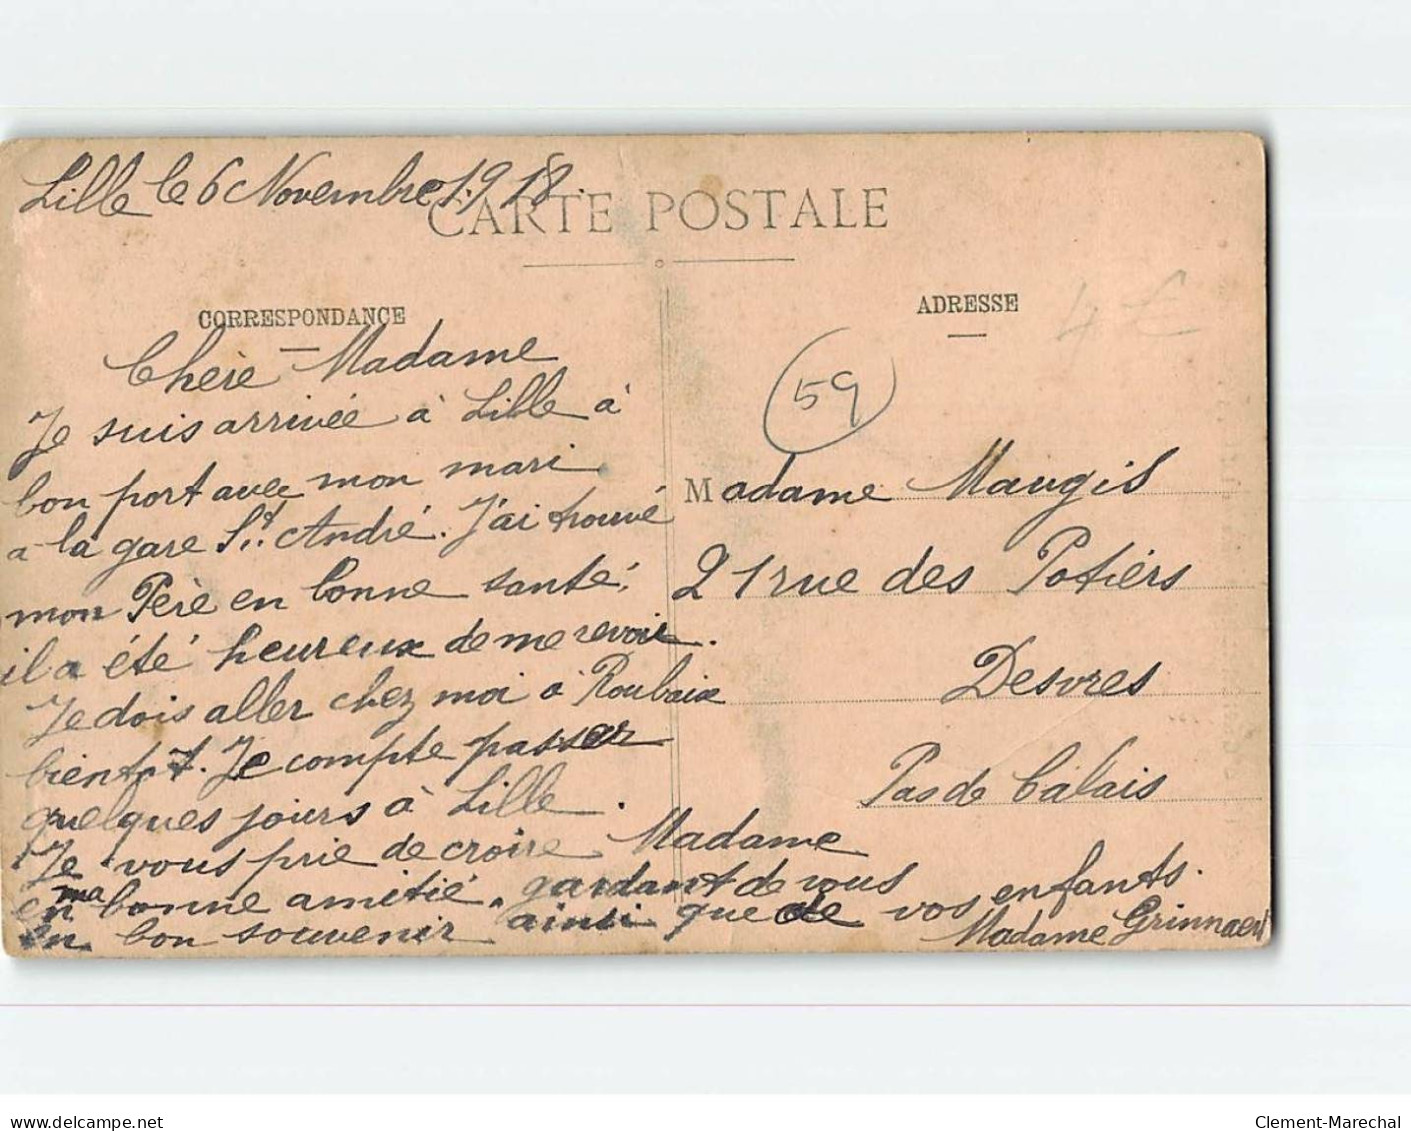 Lille le 6 Novembre 1918.
CARTE POSTALE
CORRESPONDANCE
ADRESSE
4 €
59
Chère Madame
Je suis arrivée à Lille à
bon port avec mon mari
a la gare St. André. J'ai trouvé
mon Père en bonne santé,
il a été heureux de me revoir.
Je dois aller chez moi à Roubaix
bientôt. Je compte passer
quelques jours à Lille.
Je vous prie de croire Madame
en ma bonne amitié, gardant de vous
un bon souvenir ainsi que de vos enfants.
Madame Grinnaert
Madame Maugis
21 rue des Potiérs
Desvres
Pas de Calais
www.delcampe.net
Clement-Marechal